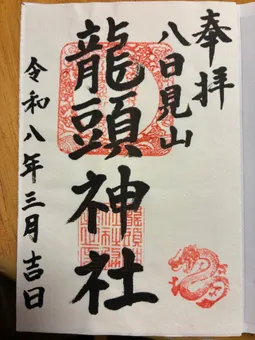 奉拝
八口見山
龍頭神社
令和八年三月吉日